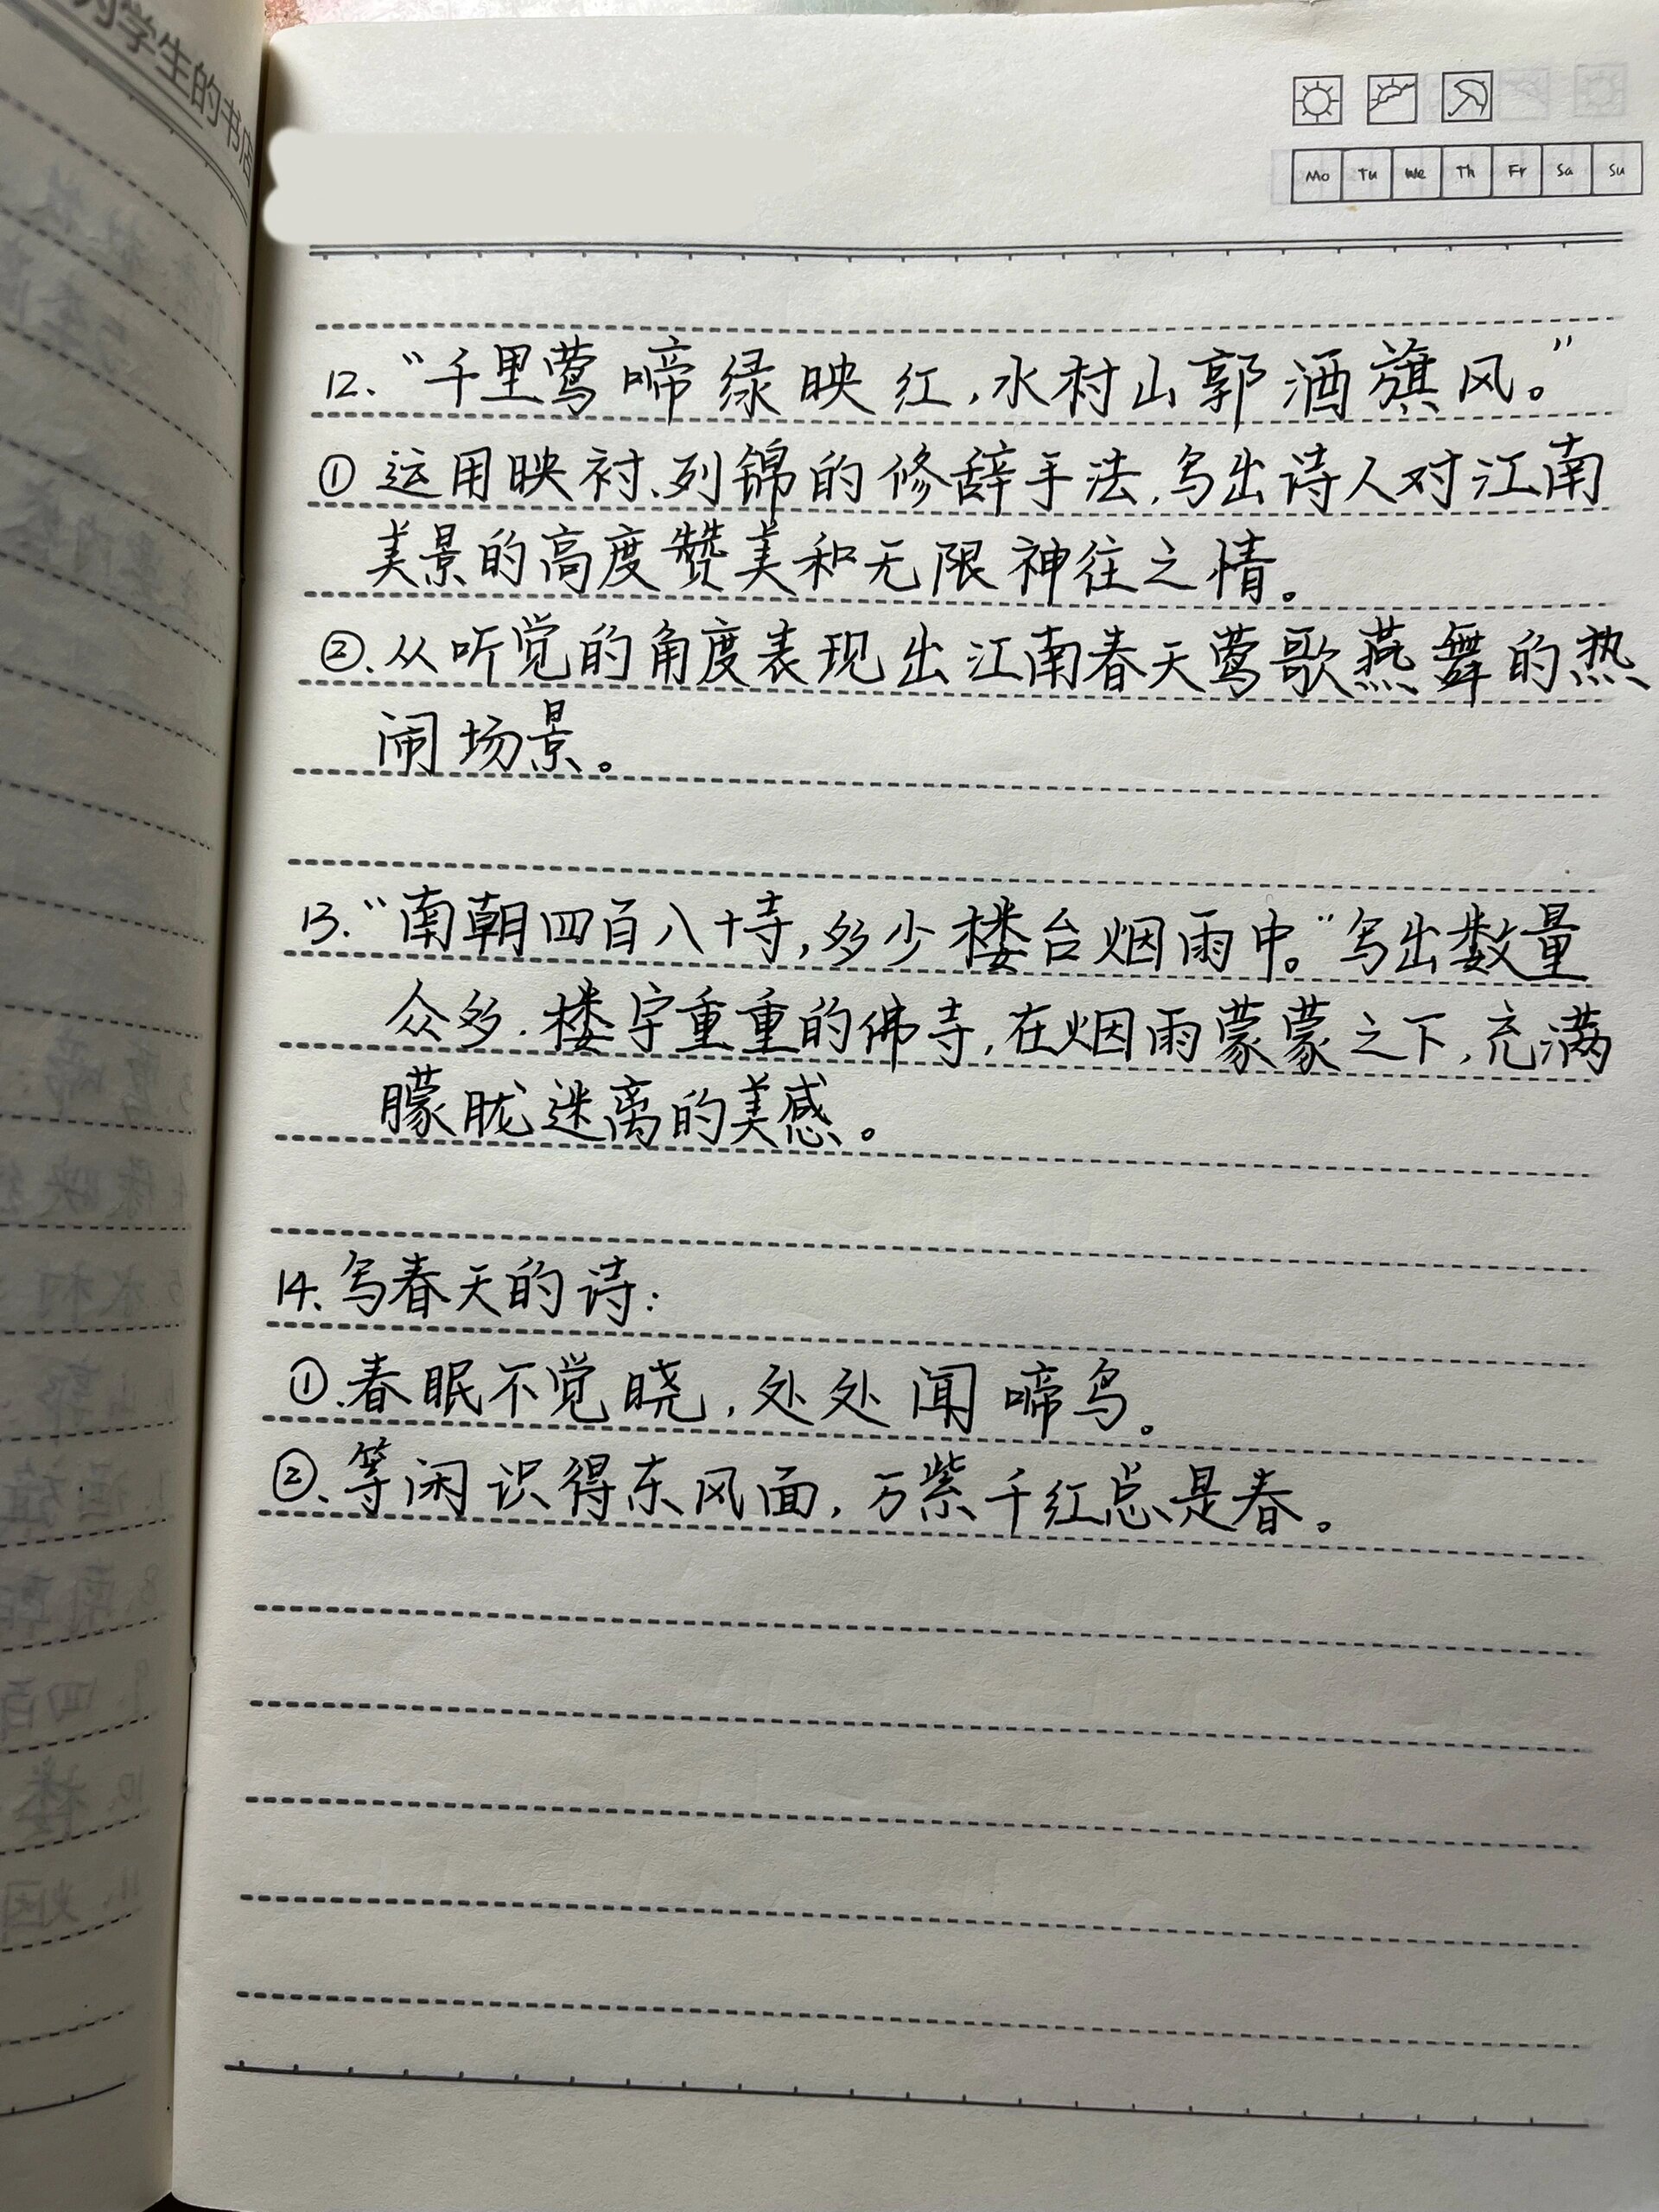 为学生的书店
Mo Tu We Th Fr Sa Su
12、“千里莺啼绿映红，水村山郭酒旗风。”
① 运用映衬、列锦的修辞手法，写出诗人对江南
美景的高度赞美和无限神往之情。
②、从听觉的角度表现出江南春天莺歌燕舞的热
闹场景。
13、“南朝四百八十寺，多少楼台烟雨中。”写出数量
众多、楼宇重重的佛寺，在烟雨蒙蒙之下，充满
朦胧迷离的美感。
14、写春天的诗：
①、春眠不觉晓，处处闻啼鸟。
②、等闲识得东风面，万紫千红总是春。